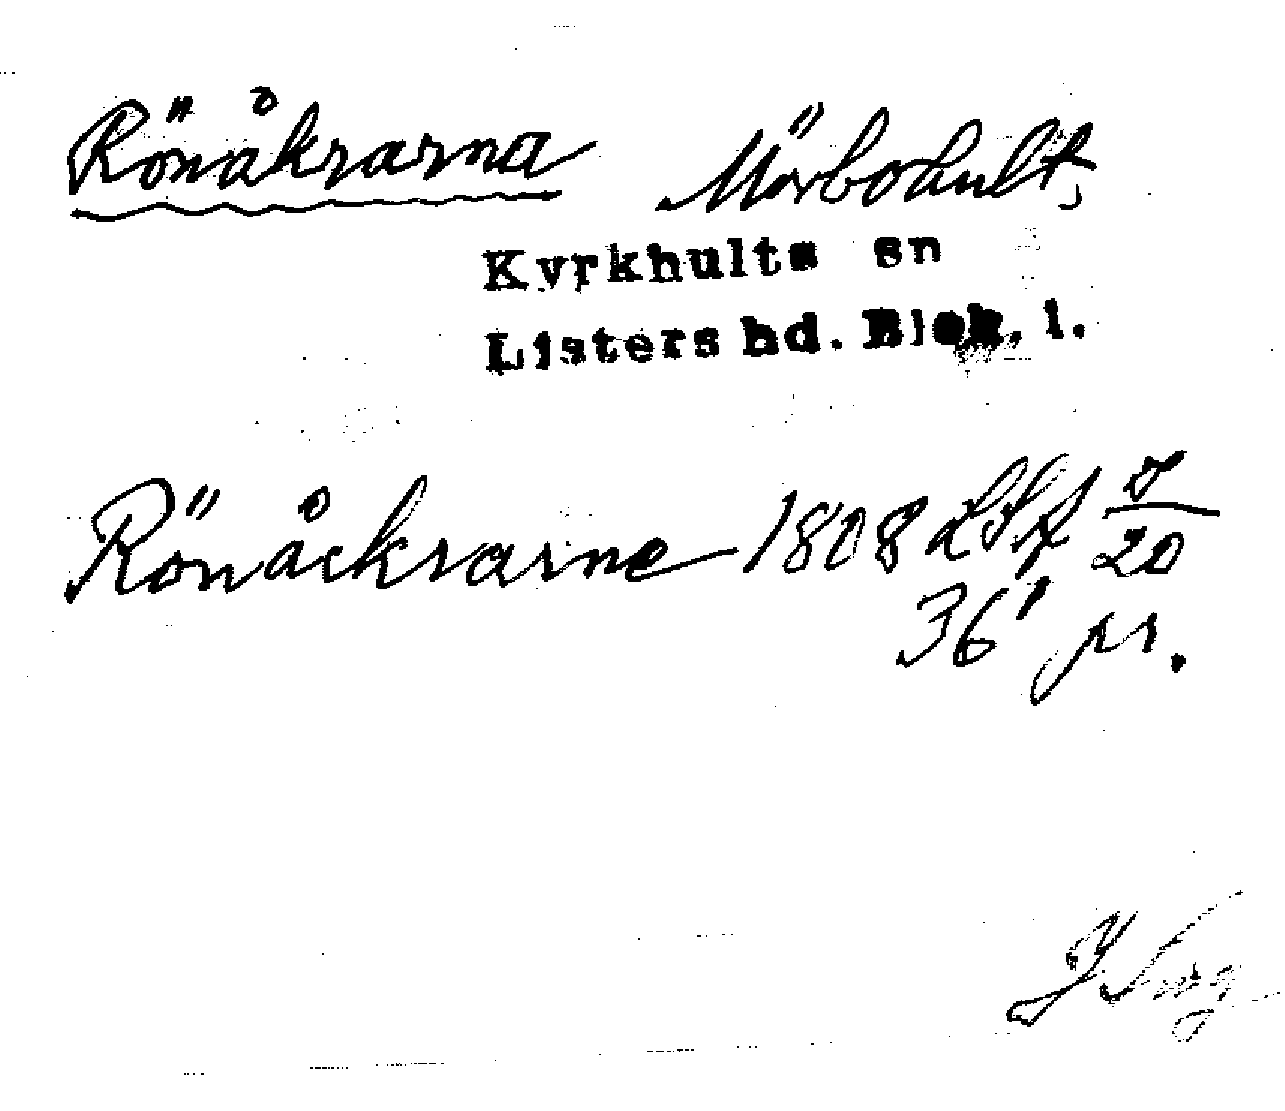 Rönåkrarna Mörbodult,
Kyrkhults sn
Listers hd. Blek. l.
Rönåckrarne 1808 LSA
20
36'